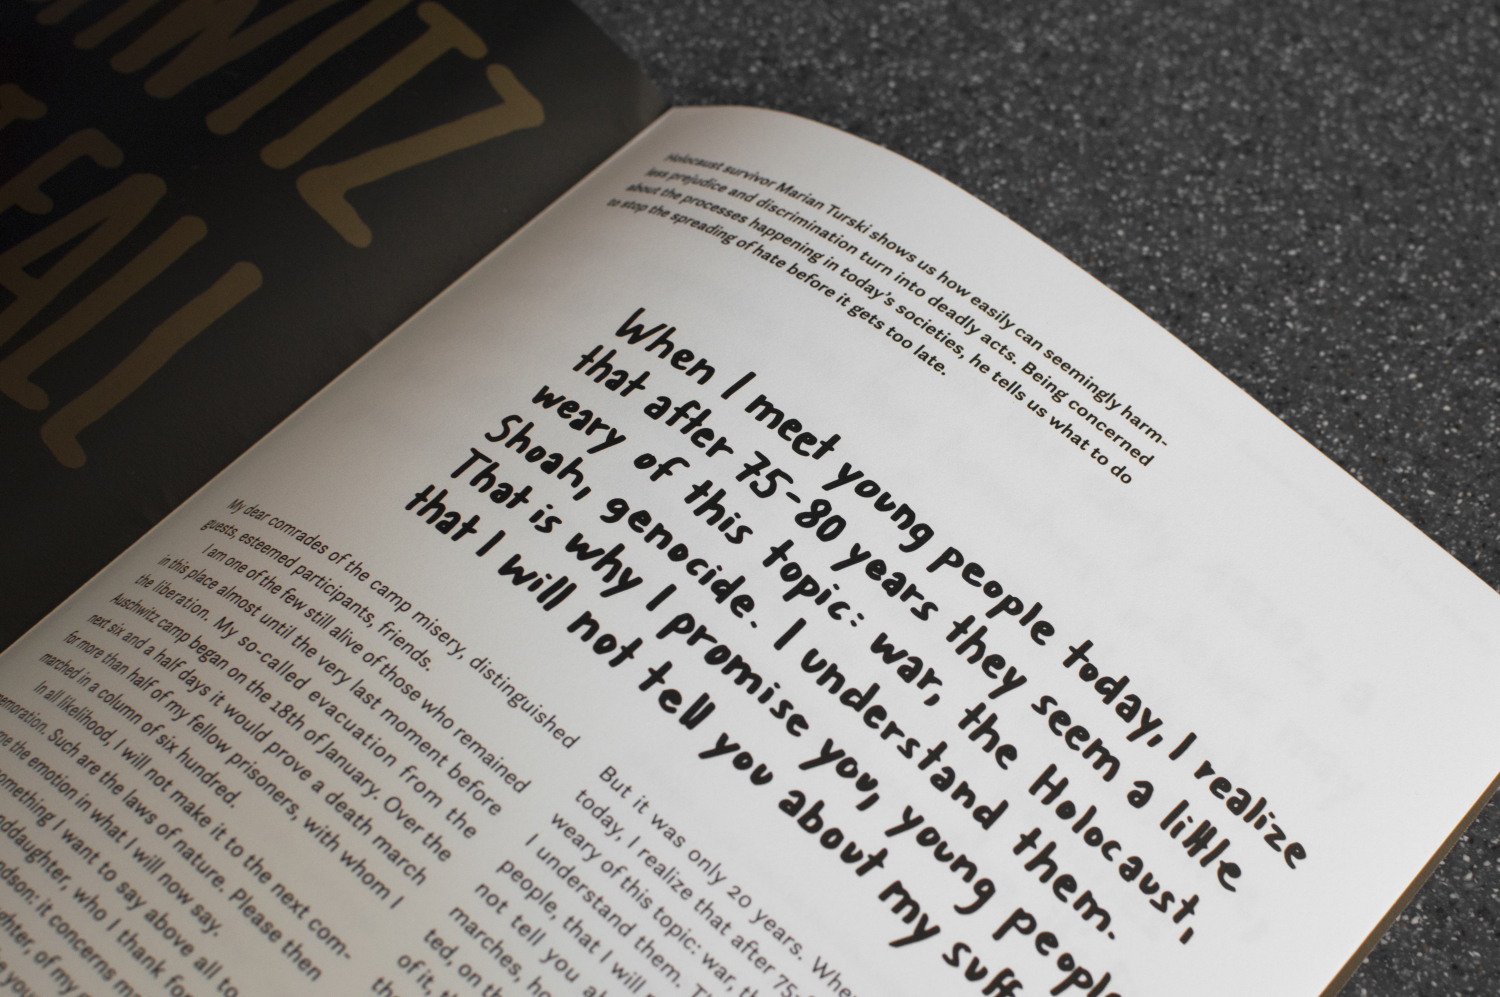 FALL
Holocaust survivor Marian Turski shows us how easily can seemingly harm-
less prejudice and discrimination turn into deadly acts. Being concerned
about the processes happening in today's societies, he tells us what to do
to stop the spreading of hate before it gets too late.
When I meet young people today, I realize
that after 75-80 years they seem a little
weary of this topic: war, the Holocaust,
Shoah, genocide. I understand them.
That is why I promise you, young
that I will not tell you about my
My dear comrades of the camp misery, distinguished
guests, esteemed participants, friends.
I am one of the few still alive of those who remained
in this place almost until the very last moment before
the liberation. My so-called evacuation from the
Auschwitz camp began on the 18th of January. Over the
next six and a half days it would prove a death march
for more than half of my fellow prisoners, with whom I
marched in a column of six hundred.
In all likelihood, I will not make it to the next com-
memoration. Such are the laws of nature. Please then
the emotion in what I will now say.
something I want to say above all to
who I thank for
it concerns
of my
But it was only 20 years.
today, I realize that after 75-
weary of this topic: war,
I understand them.
people, that I will
not tell you
marches,
ted, on
of it,